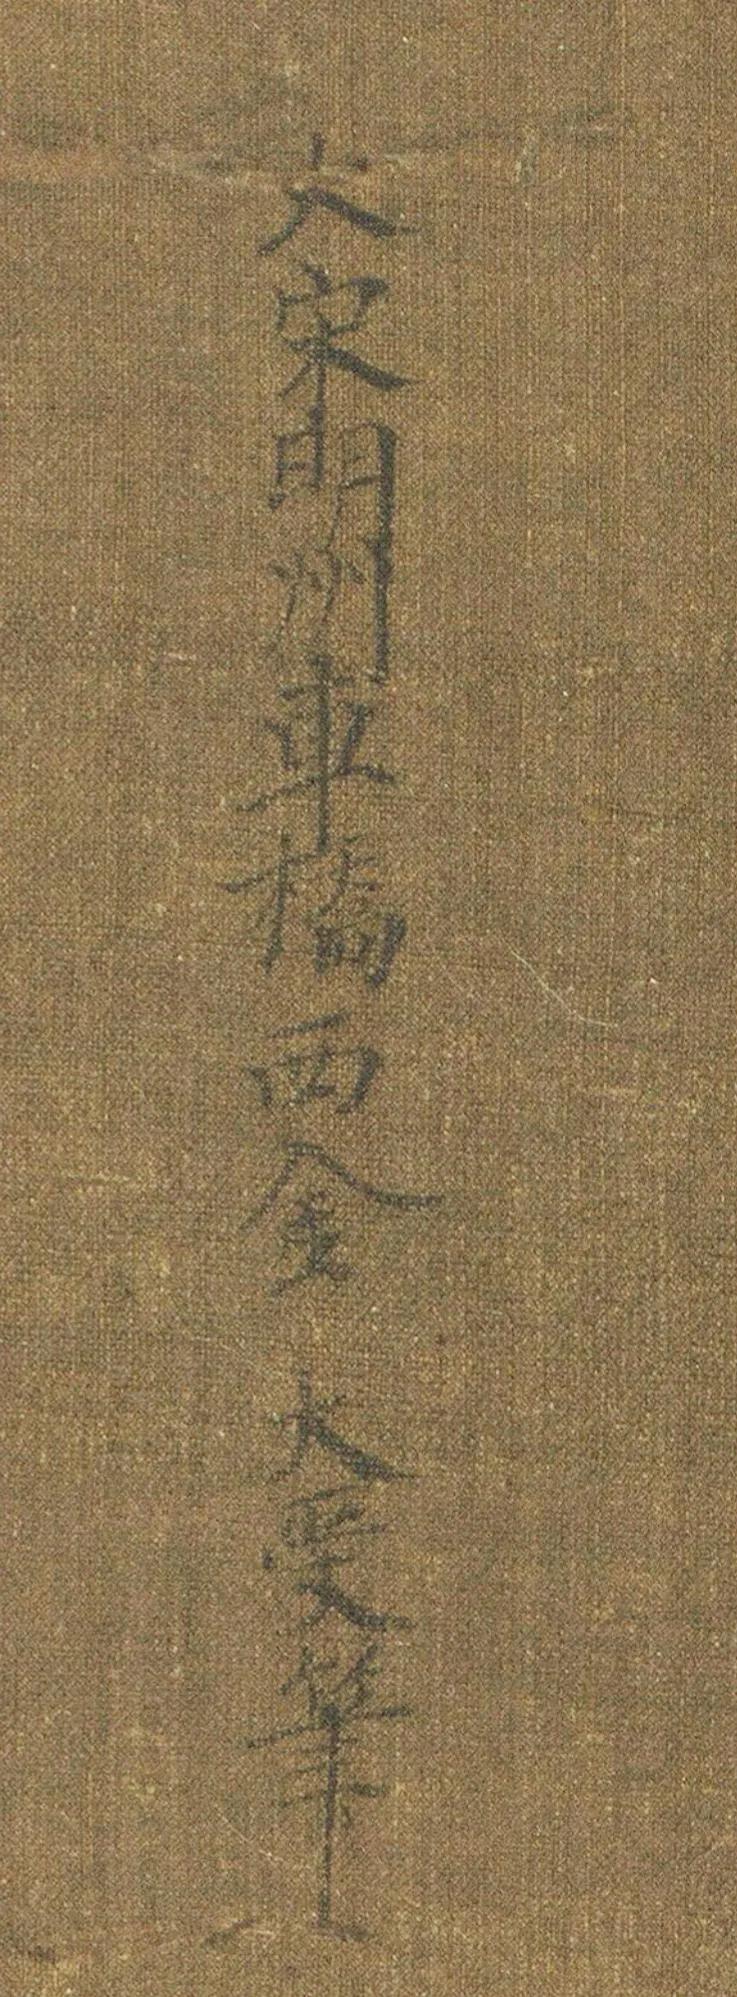 大宋明州車橋西金大受筆